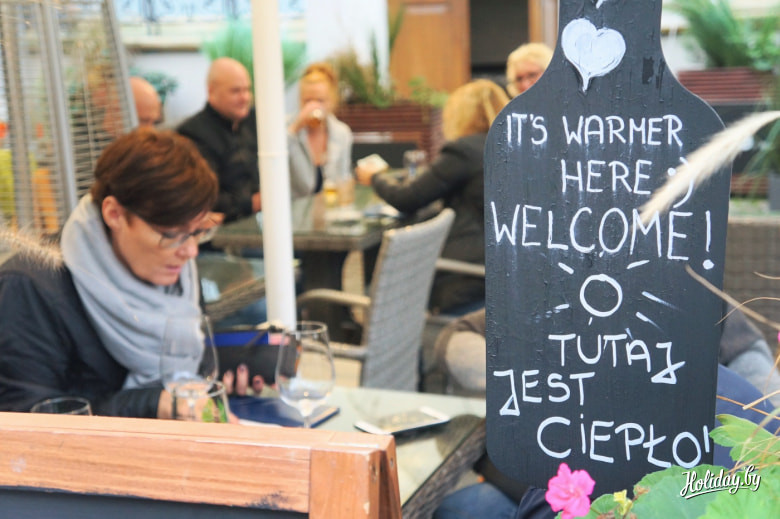 IT'S WARMER
HERE :)
WELCOME!
TUTAJ
JEST
CIEPŁO!
Holiday.by